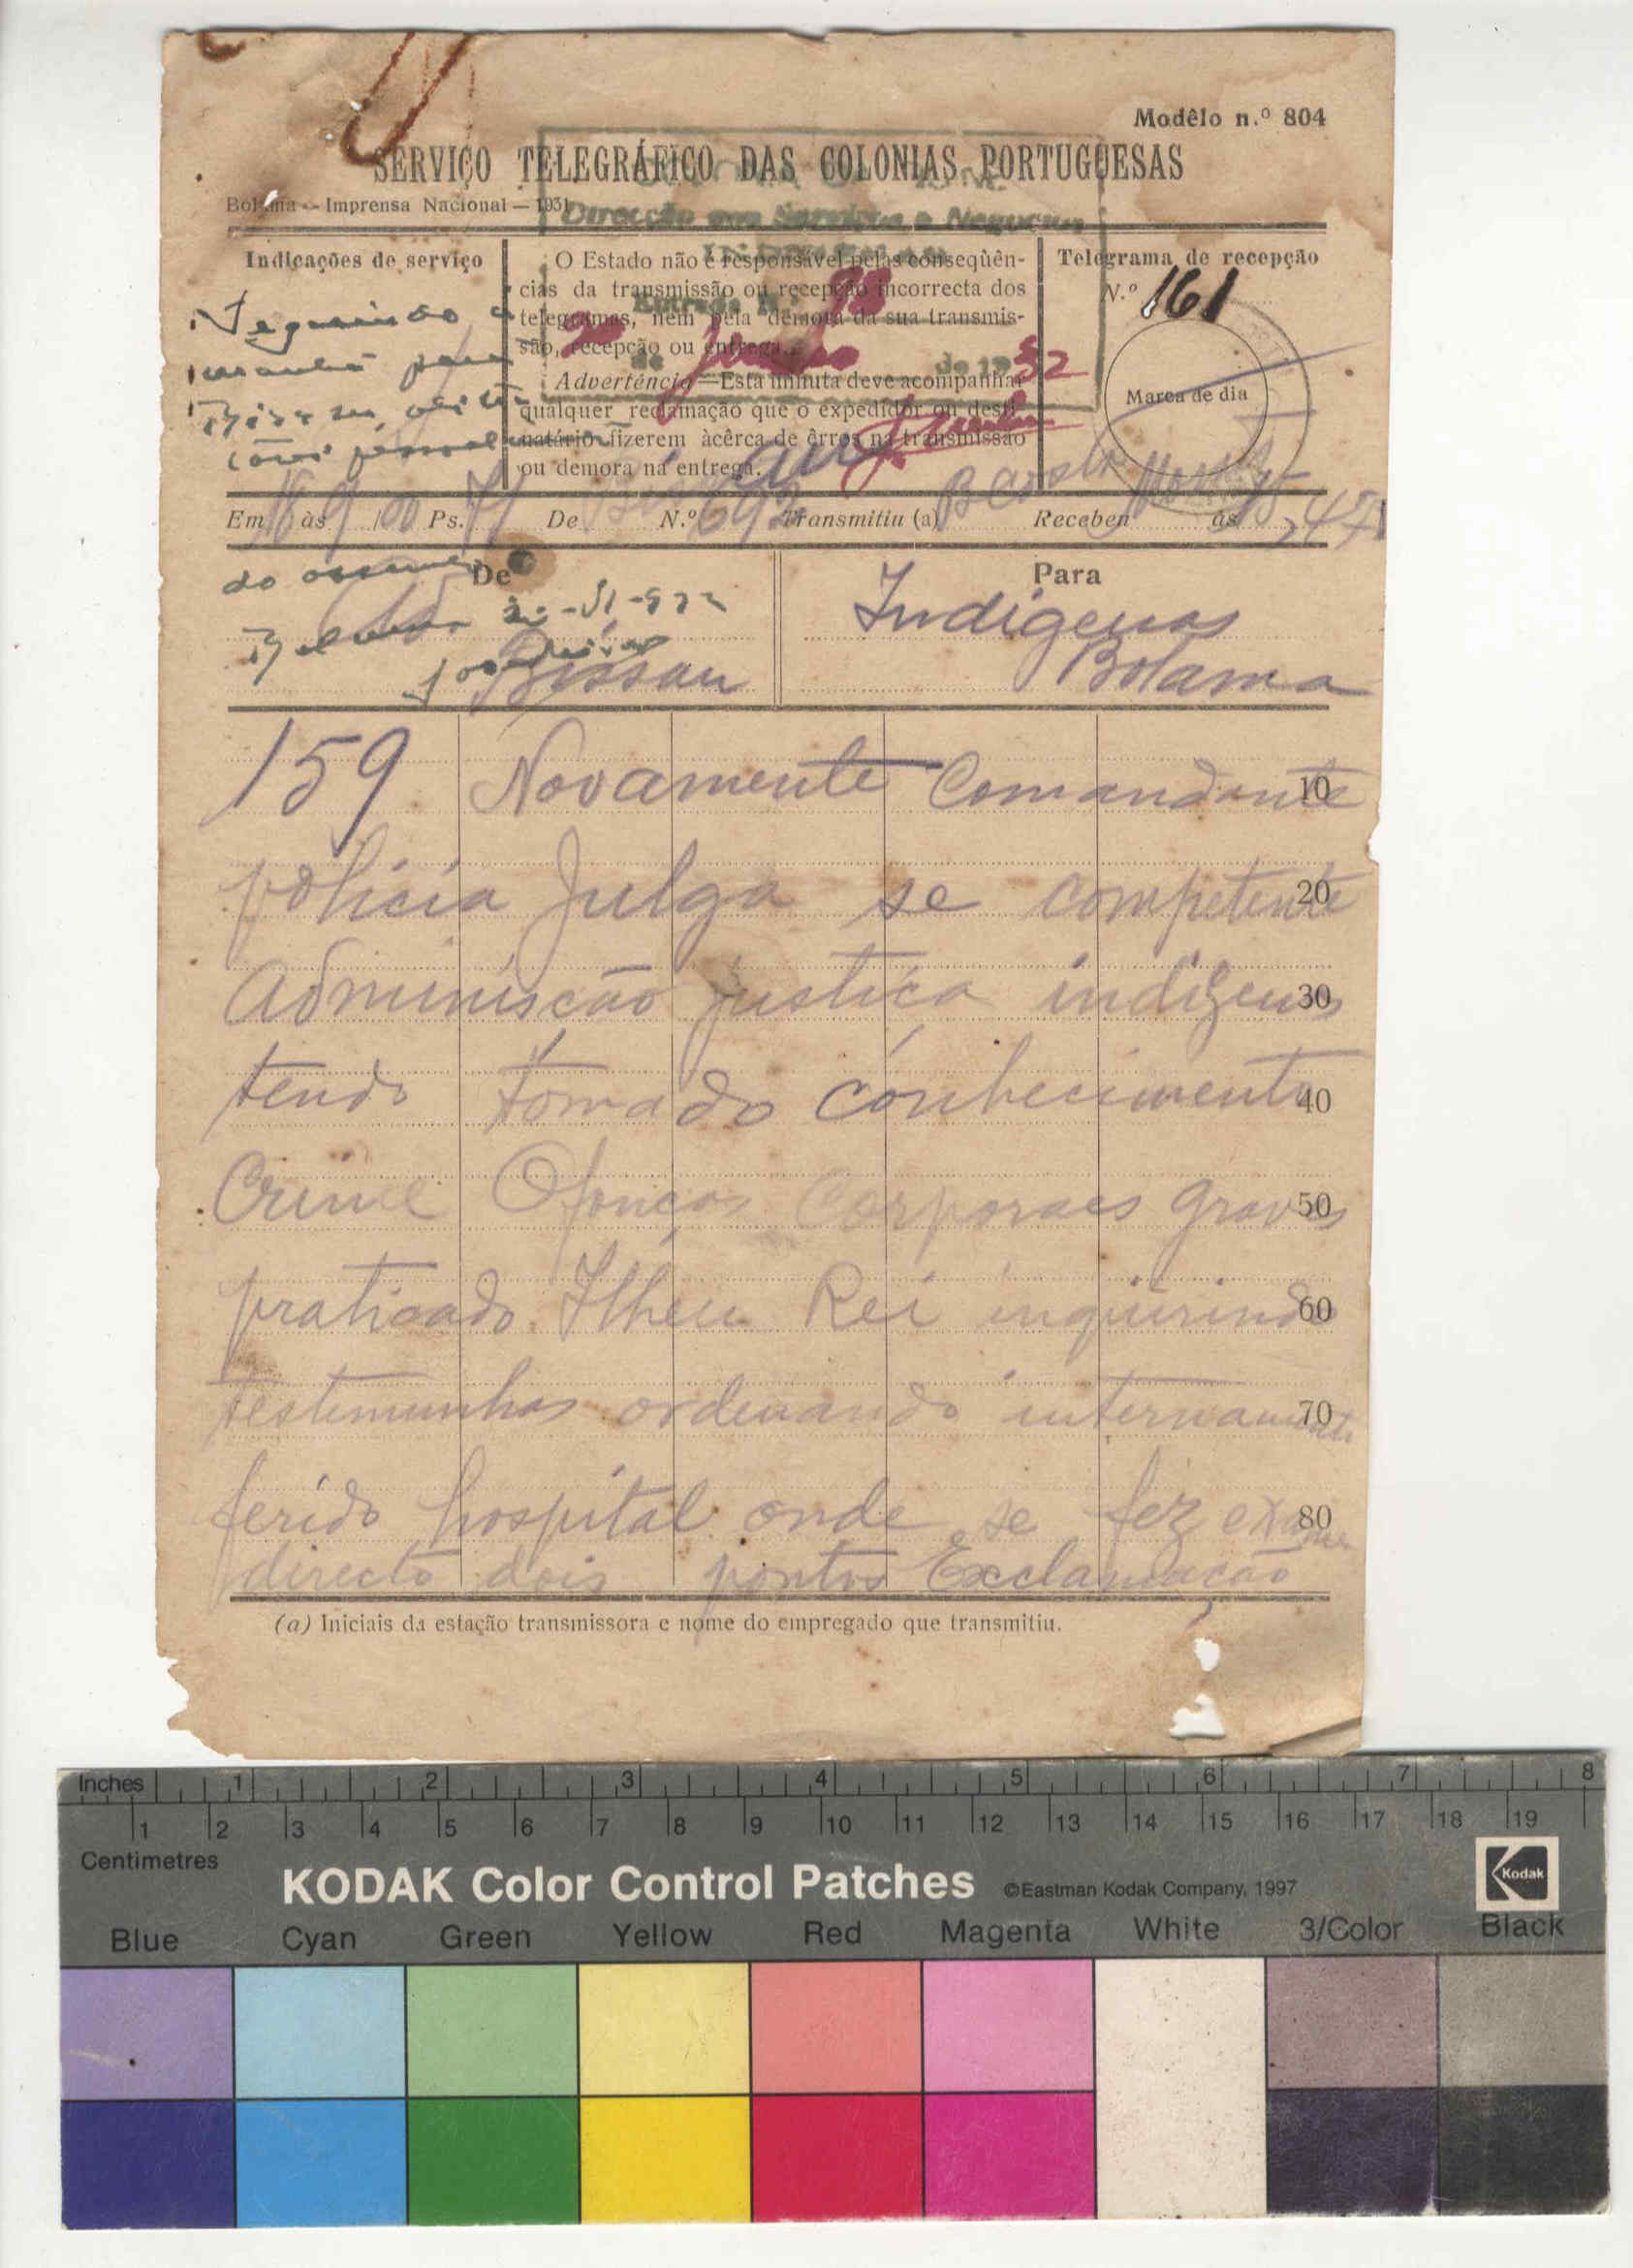 Modêlo n.º 804
SERVIÇO TELEGRÁFICO DAS COLONIAS PORTUGUESAS
Bolama — Imprensa Nacional — 1931
Direcção dos Serviços e Negocios
Indicações de serviço
O Estado não é responsável pelas conseqüên-
cias da transmissão ou recepção incorrecta dos
telegramas, nem pela demora da sua transmis-
são, recepção ou entrega.
Advertência—Esta minuta deve acompanhar
qualquer reclamação que o expedidor ou desti-
natário fizerem àcêrca de êrros na transmissão
ou demora na entrega.
Entrada N.º
de de 1932
Telegrama de recepção
N.º 161
Marca de dia
Seguindo
para
Em às Ps. 71 De N.º 692 Transmitiu (a) Recebeu às
De
Bissau
Para
Indigenas
Bolama
159 Novamente Comandante 10
policia Julga se competente 20
Adminiscão justiça indigenas 30
tendo tomado conhecimento 40
Crime Ofonças Corporaes graves 50
praticado Ilheu Rei inquirindo 60
testemunhas ordenando internamento 70
ferido hospital onde se fez exame 80
directo dois pontos Exclamação
(a) Iniciais da estação transmissora e nome do empregado que transmitiu.
Inches 1 2 3 4 5 6 7 8
1 2 3 4 5 6 7 8 9 10 11 12 13 14 15 16 17 18 19
Centimetres
KODAK Color Control Patches ©Eastman Kodak Company, 1997 Kodak
Blue Cyan Green Yellow Red Magenta White 3/Color Black